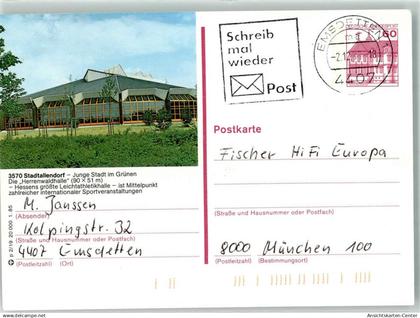 Schreib
mal
wieder
Post
EMSDETTEN 1
-2.12.
4407
60
3570 Stadtallendorf – Junge Stadt im Grünen
Die „Herrenwaldhalle" (90 × 51 m)
– Hessens größte Leichtathletikhalle – ist Mittelpunkt
zahlreicher internationaler Sportveranstaltungen
M. Janssen
(Absender)
Kolpingstr. 32
(Straße und Hausnummer oder Postfach)
4407 Emsdetten
(Postleitzahl) (Ort)
p 2/19 20 000 1.85
Postkarte
Fischer HiFi Europa
(Straße und Hausnummer oder Postfach)
8000 München 100
(Postleitzahl) (Bestimmungsort)
Ansichtskarten-Center